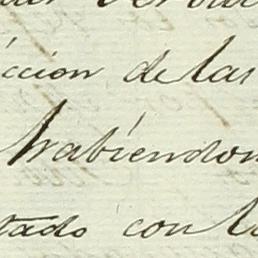 ccion de las
habiendon
tado con l